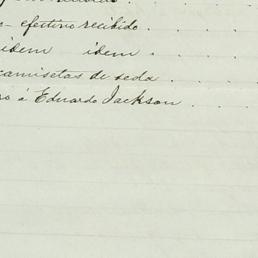 - efectivo recibido.
idem idem.
camisetas de seda
á Eduardo Jackson